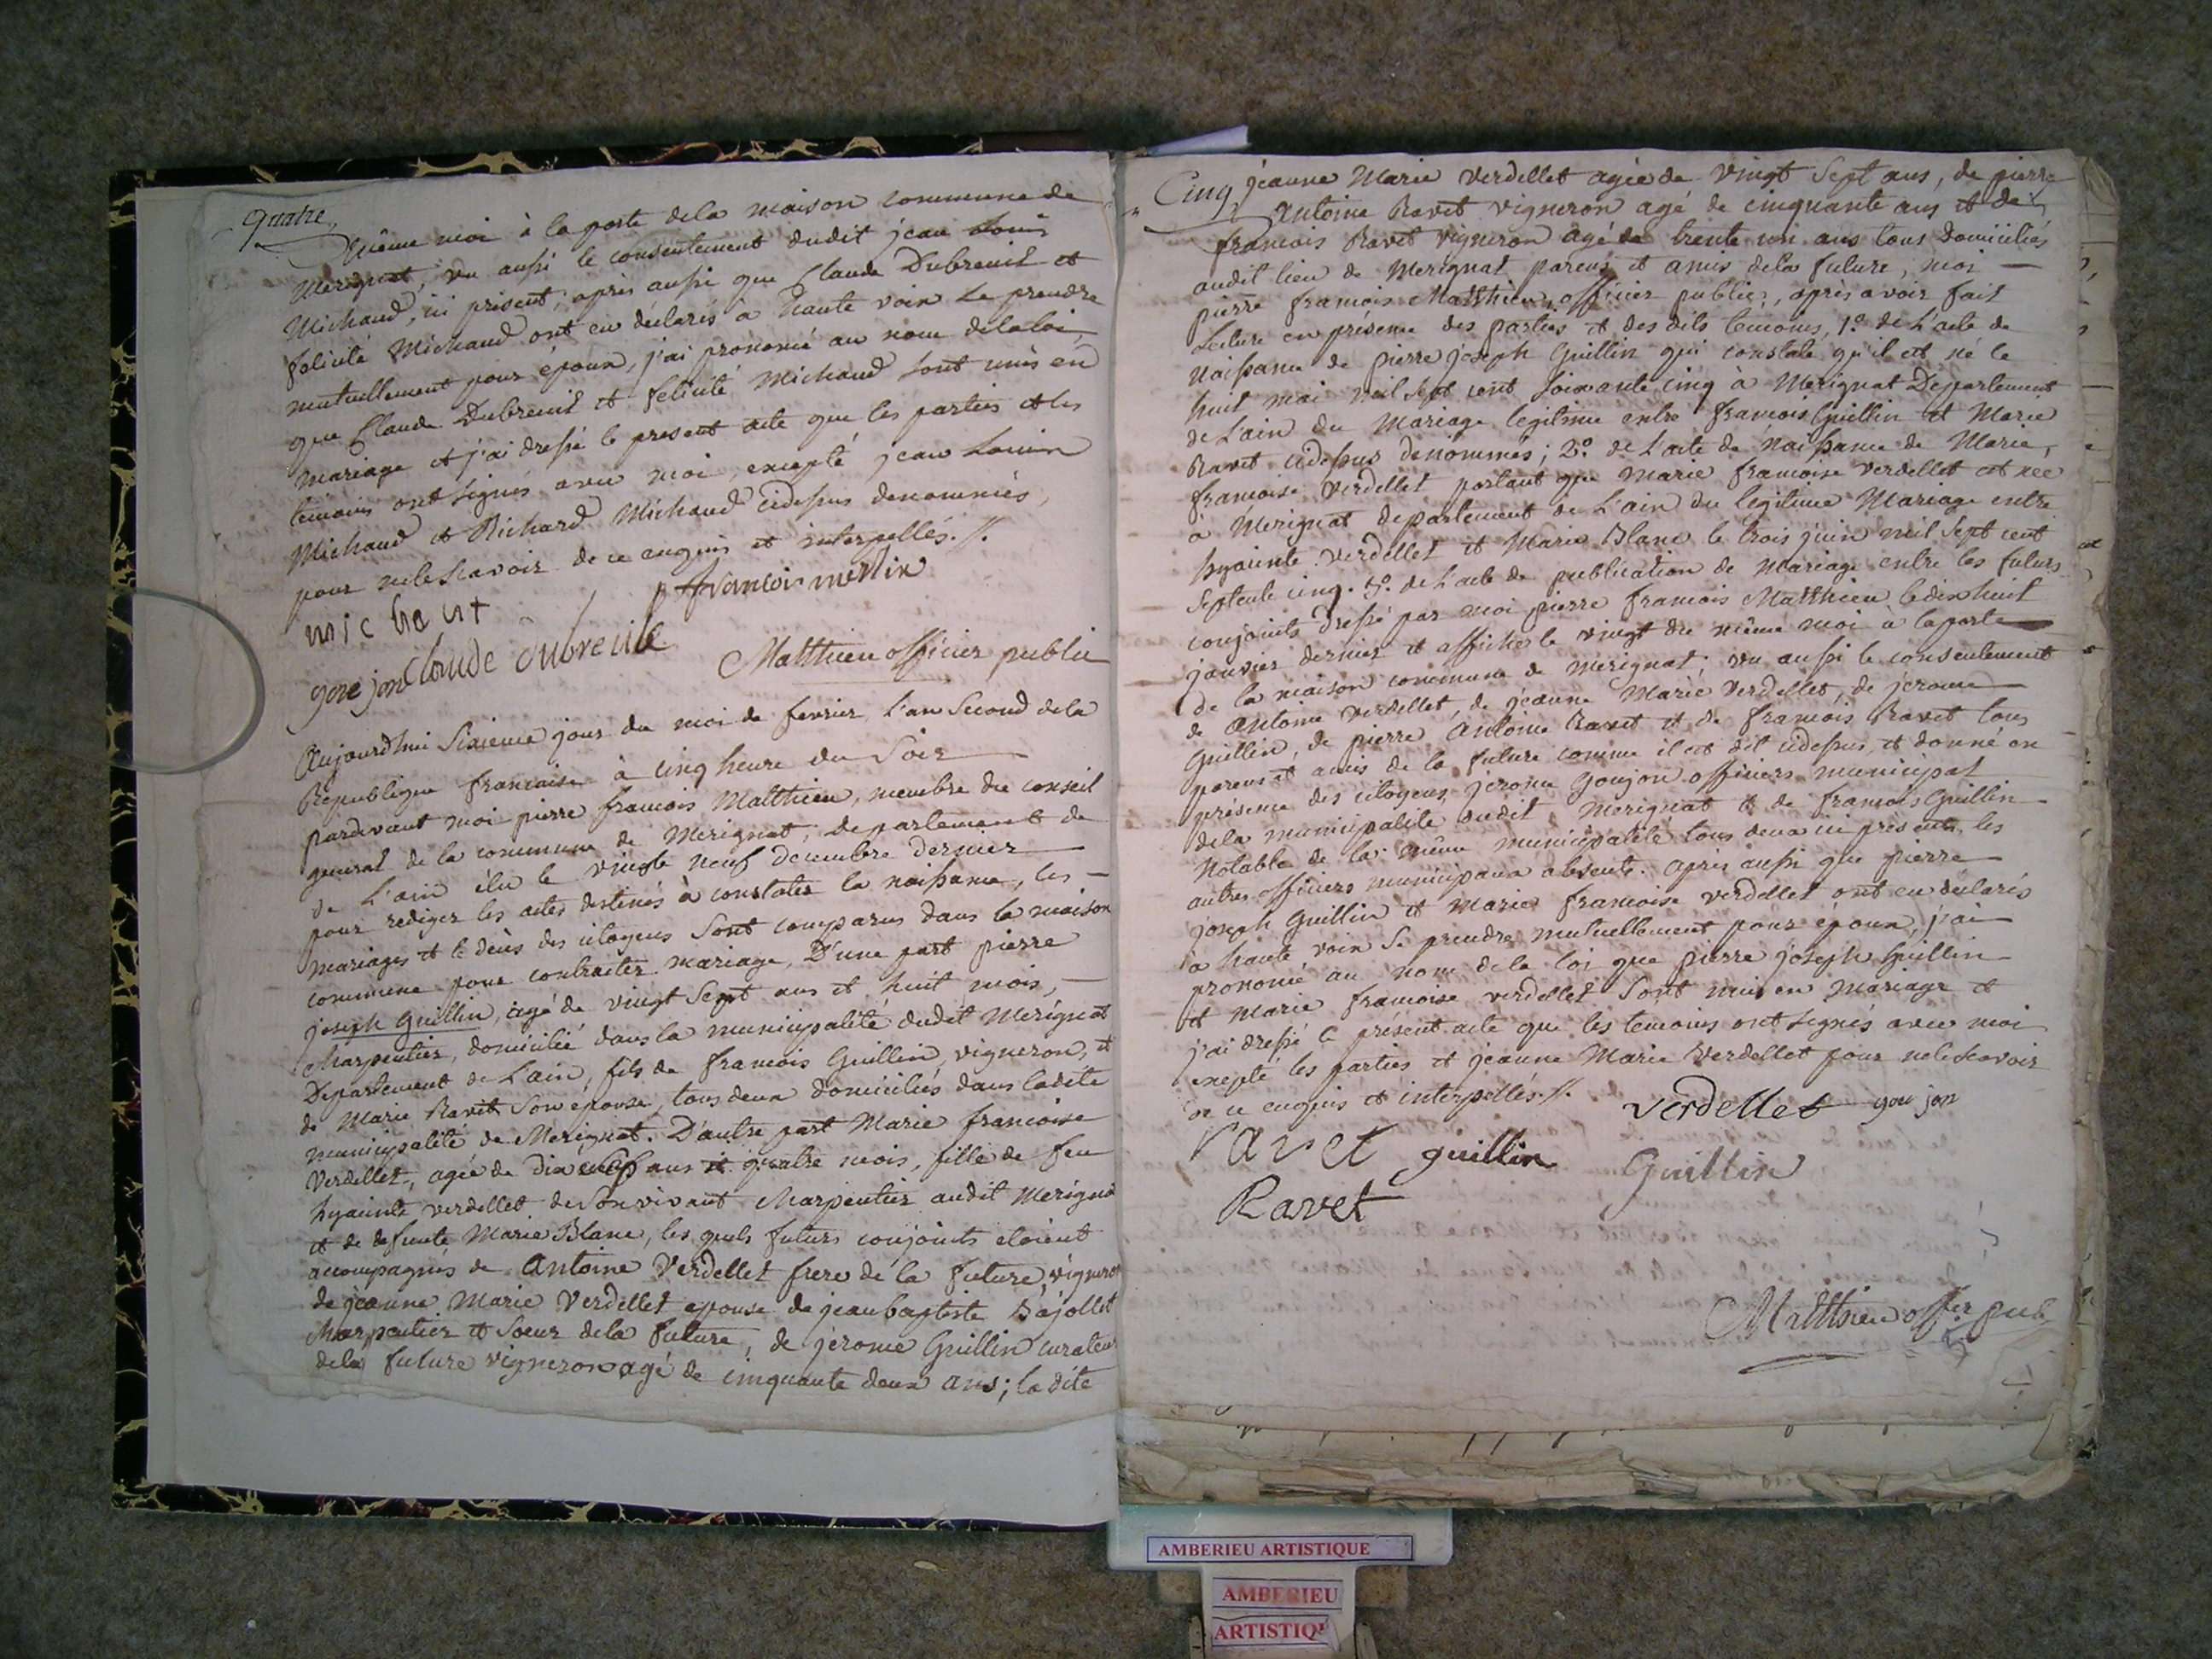 quatre
même moi à la porte dela maison commune de
Merignat, vu aussi le consentement dudit jean Louis
Michaud, ici présent, après aussi que Claude Dubreuil et
félicité Michaud ont eu déclarés à haute voix se prendre
mutuellement pour époux, j'ai prononcé au nom delaloi,
que Claude Dubreuil et félicité Michaud sont unis en
mariage et j'ai dressé le present acte que les parties et les
témoins ont signés avec moi, excepté jean Louis
Michaud et Richard Michaud cidessus denommés,
pour nelesçavoir de ce enquis et interpellés.//.
michaut
françois merlin
goujon Claude dubreuile
Matthieu officier public
Aujourdhui Sixieme jour du moi de fevrier l'an Second dela
Republique française à cinq heure du Soir
pardevant moi pierre francois Matthieu, membre du conseil
general de la commune de Merignat, departement de
de L'ain élu le vingt neuf decembre dernier
pour rediger les actes destinés à constater la naissance, les
mariages et le décès des citoyens Sont comparus dans la maison
commune pour contracter mariage, D'une part pierre
joseph Guillin, agé de vingt Sept ans et huit mois,
Charpentier, domicilié dans la municipalité dudit Mérignat
Departement de L'ain, fils de francois Guillin, vigneron, et
de Marie Ravet son épouse, tous deux domiciliés dans ladite
municipalité de Merignat. D'autre part Marie francoise
Verdellet, agée de dix Sept ans et quatre mois, fille de feu
hyacinte verdellet de Son vivant Charpentier audit Merigna
et de defunte Marie Blanc, les quels futurs conjoints etoient
accompagnés de Antoine Verdellet frere de la future vigneron
de jeanne Marie Verdellet epouse de jeanbaptiste Bajollet
Charpentier et Soeur dela future, de jerome Guillin curateur
dela future vigneron agé de cinquante deux ans; la dite
Cinq
jeanne Marie Verdellet agée de vingt Sept ans, de pierre
Antoine Ravet vigneron agé de cinquante ans et de
francois Ravet vigneron agé de trente un ans tous domiciliés
audit lieu de Merignat parens et amis dela future, moi
pierre francois Matthieu, officier public, après avoir fait
Lecture en présence des parties et des dits temoins, 1.º de L'acte de
naissance de pierre joseph Guillin qui constate qu'il est né le
huit mai mil sept cent soixante cinq à Merignat Département
de Lain du Mariage legitime entre francois Guillin et Marie
Ravet cidessus denommés; 2.º de L'acte de naissance de Marie,
francoise Verdellet portant que Marie francoise Verdellet est née
à Merignat departement de L'ain du legitime Mariage entre
hyacinte Verdellet et Marie Blanc le trois juin mil Sept cent
Septente cinq. 3.º de L'acte de publication de mariage entre les futurs
conjoints dressé par moi pierre francois Matthieu le dix huit
janvier dernier et affiché le vingt du même moi à la porte
de la maison commune de Merignat; vu aussi le consentement
de Antoine Verdellet, de jeanne Marie Verdellet, de jerome
Guillin, de pierre Antoine Ravet et de francois Ravet tous
parens et amis de la future comme il est dit cidessus, et donné en
présence des citoyens jerome Goujon officiers municipal
dela municipalité dudit Merignat et de francois Guillin
Notable de la même municipalité tous deux ici présents, les
autres officiers municipaux absents. après aussi que pierre
joseph Guillin et Marie francoise verdellet ont eu déclarés
à haute voix se prendre mutuellement pour epoux, j'ai
prononcé au nom dela loi que pierre joseph Guillin
et Marie francoise verdellet Sont unis en mariage et
j'ai dressé le présent acte que les temoins ont signés avec moi
excepté les parties et jeanne Marie Verdellet pour nelesçavoir
de ce enquis et interpellés.//.
verdellet goujon
ravet guillin Guillin
Ravet
Matthieu offier pub
AMBERIEU ARTISTIQUE
AMBERIEU
ARTISTIQU